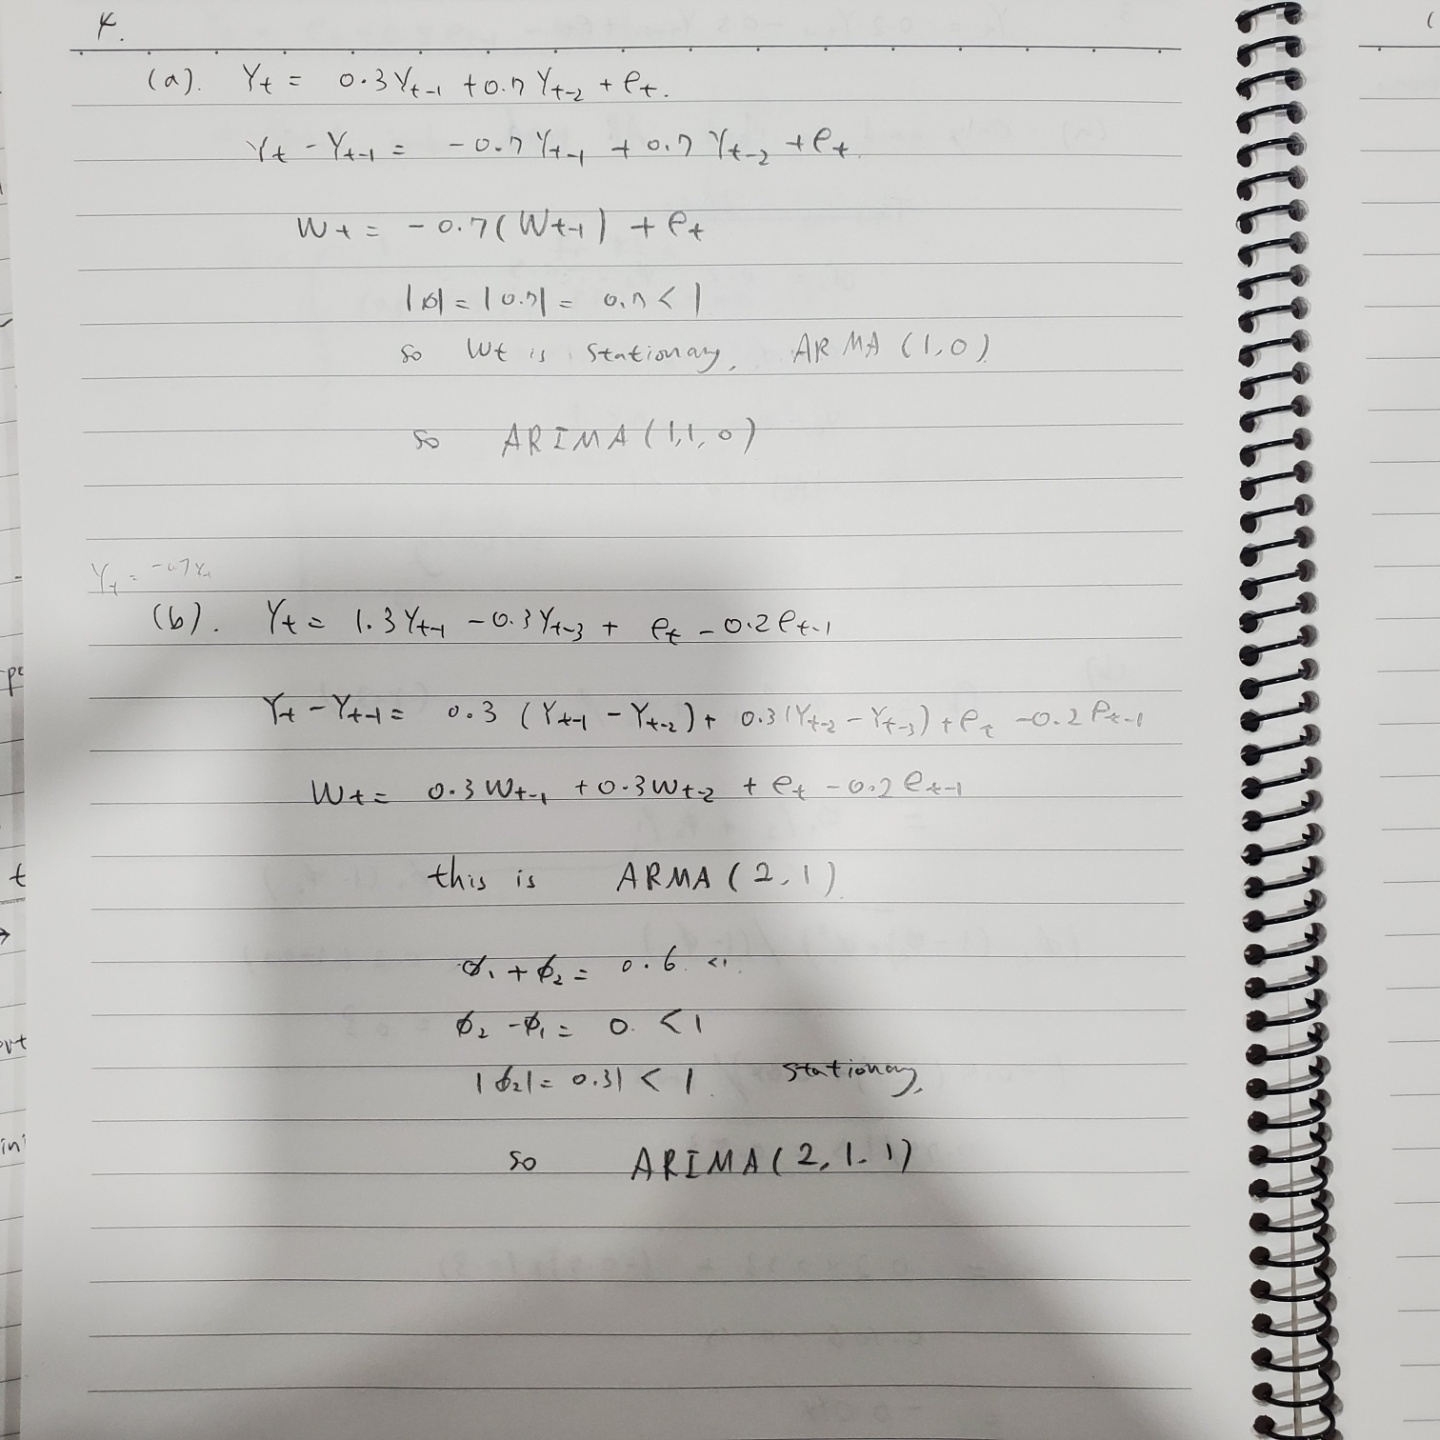 4.
(a). Yt = 0.3Yt-1 + 0.7Yt-2 + et.
Yt - Yt-1 = -0.7Yt-1 + 0.7Yt-2 + et.
Wt = -0.7(Wt-1) + et
|ϕ| = |0.7| = 0.7 < 1
so Wt is stationary, ARMA(1,0)
so ARIMA(1,1,0)
(b). Yt = 1.3Yt-1 - 0.3Yt-3 + et - 0.2et-1
Yt - Yt-1 = 0.3(Yt-1 - Yt-2) + 0.3(Yt-2 - Yt-3) + et - 0.2et-1
Wt = 0.3Wt-1 + 0.3Wt-2 + et - 0.2et-1
this is ARMA(2,1)
ϕ1 + ϕ2 = 0.6 <1
ϕ2 - ϕ1 = 0. < 1
|ϕ2| = 0.3| < 1. stationary,
so ARIMA(2,1.1)